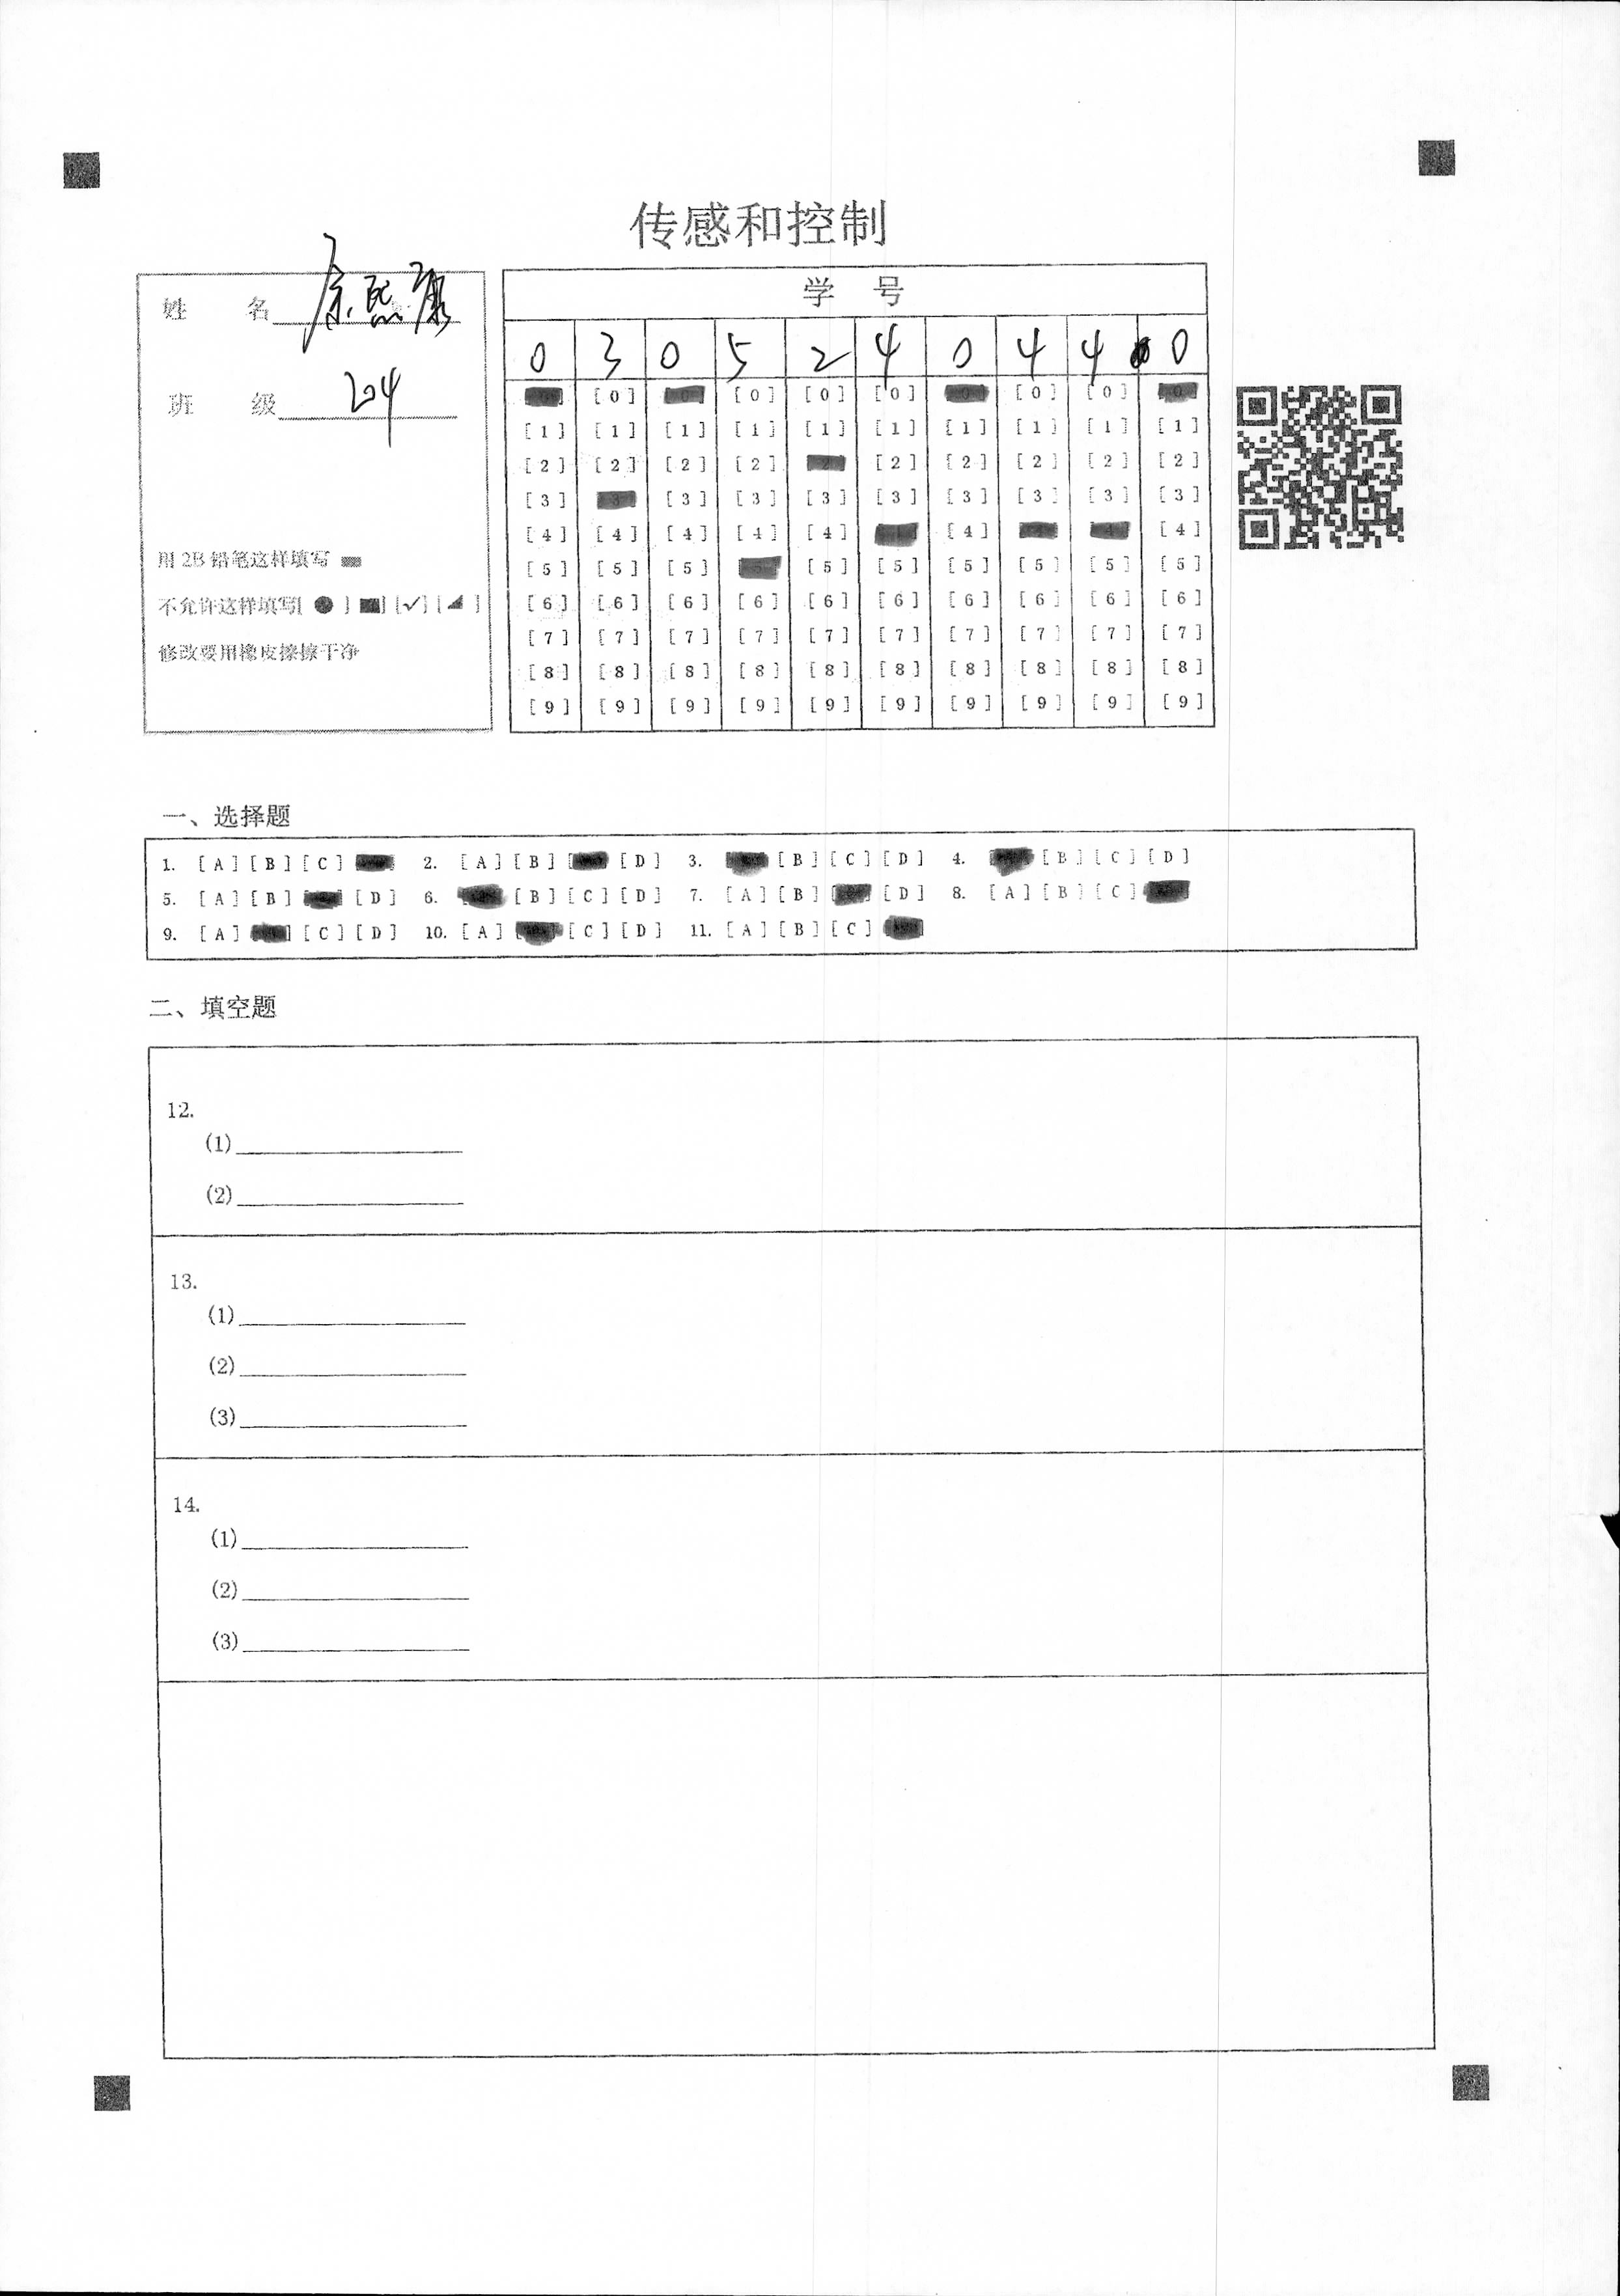 传感和控制
姓 名 熙康
班 级 204
用 2B 铅笔这样填写
不允许这样填写[ ● ] [■] [✓] [◢ ]
修改要用橡皮擦擦干净
学 号
0 3 0 5 2 4 0 4 4 0
[0] [0] [0] [0] [0] [0]
[1] [1] [1] [1] [1] [1] [1] [1] [1] [1]
[2] [2] [2] [2] [2] [2] [2] [2] [2]
[3] [3] [3] [3] [3] [3] [3] [3] [3]
[4] [4] [4] [4] [4] [4] [4]
[5] [5] [5] [5] [5] [5] [5] [5] [5]
[6] [6] [6] [6] [6] [6] [6] [6] [6] [6]
[7] [7] [7] [7] [7] [7] [7] [7] [7] [7]
[8] [8] [8] [8] [8] [8] [8] [8] [8] [8]
[9] [9] [9] [9] [9] [9] [9] [9] [9] [9]
一、选择题
1. [A] [B] [C] 2. [A] [B] [D] 3. [B] [C] [D] 4. [B] [C] [D]
5. [A] [B] [D] 6. [B] [C] [D] 7. [A] [B] [D] 8. [A] [B] [C]
9. [A] [C] [D] 10. [A] [C] [D] 11. [A] [B] [C]
二、填空题
12.
(1)
(2)
13.
(1)
(2)
(3)
14.
(1)
(2)
(3)